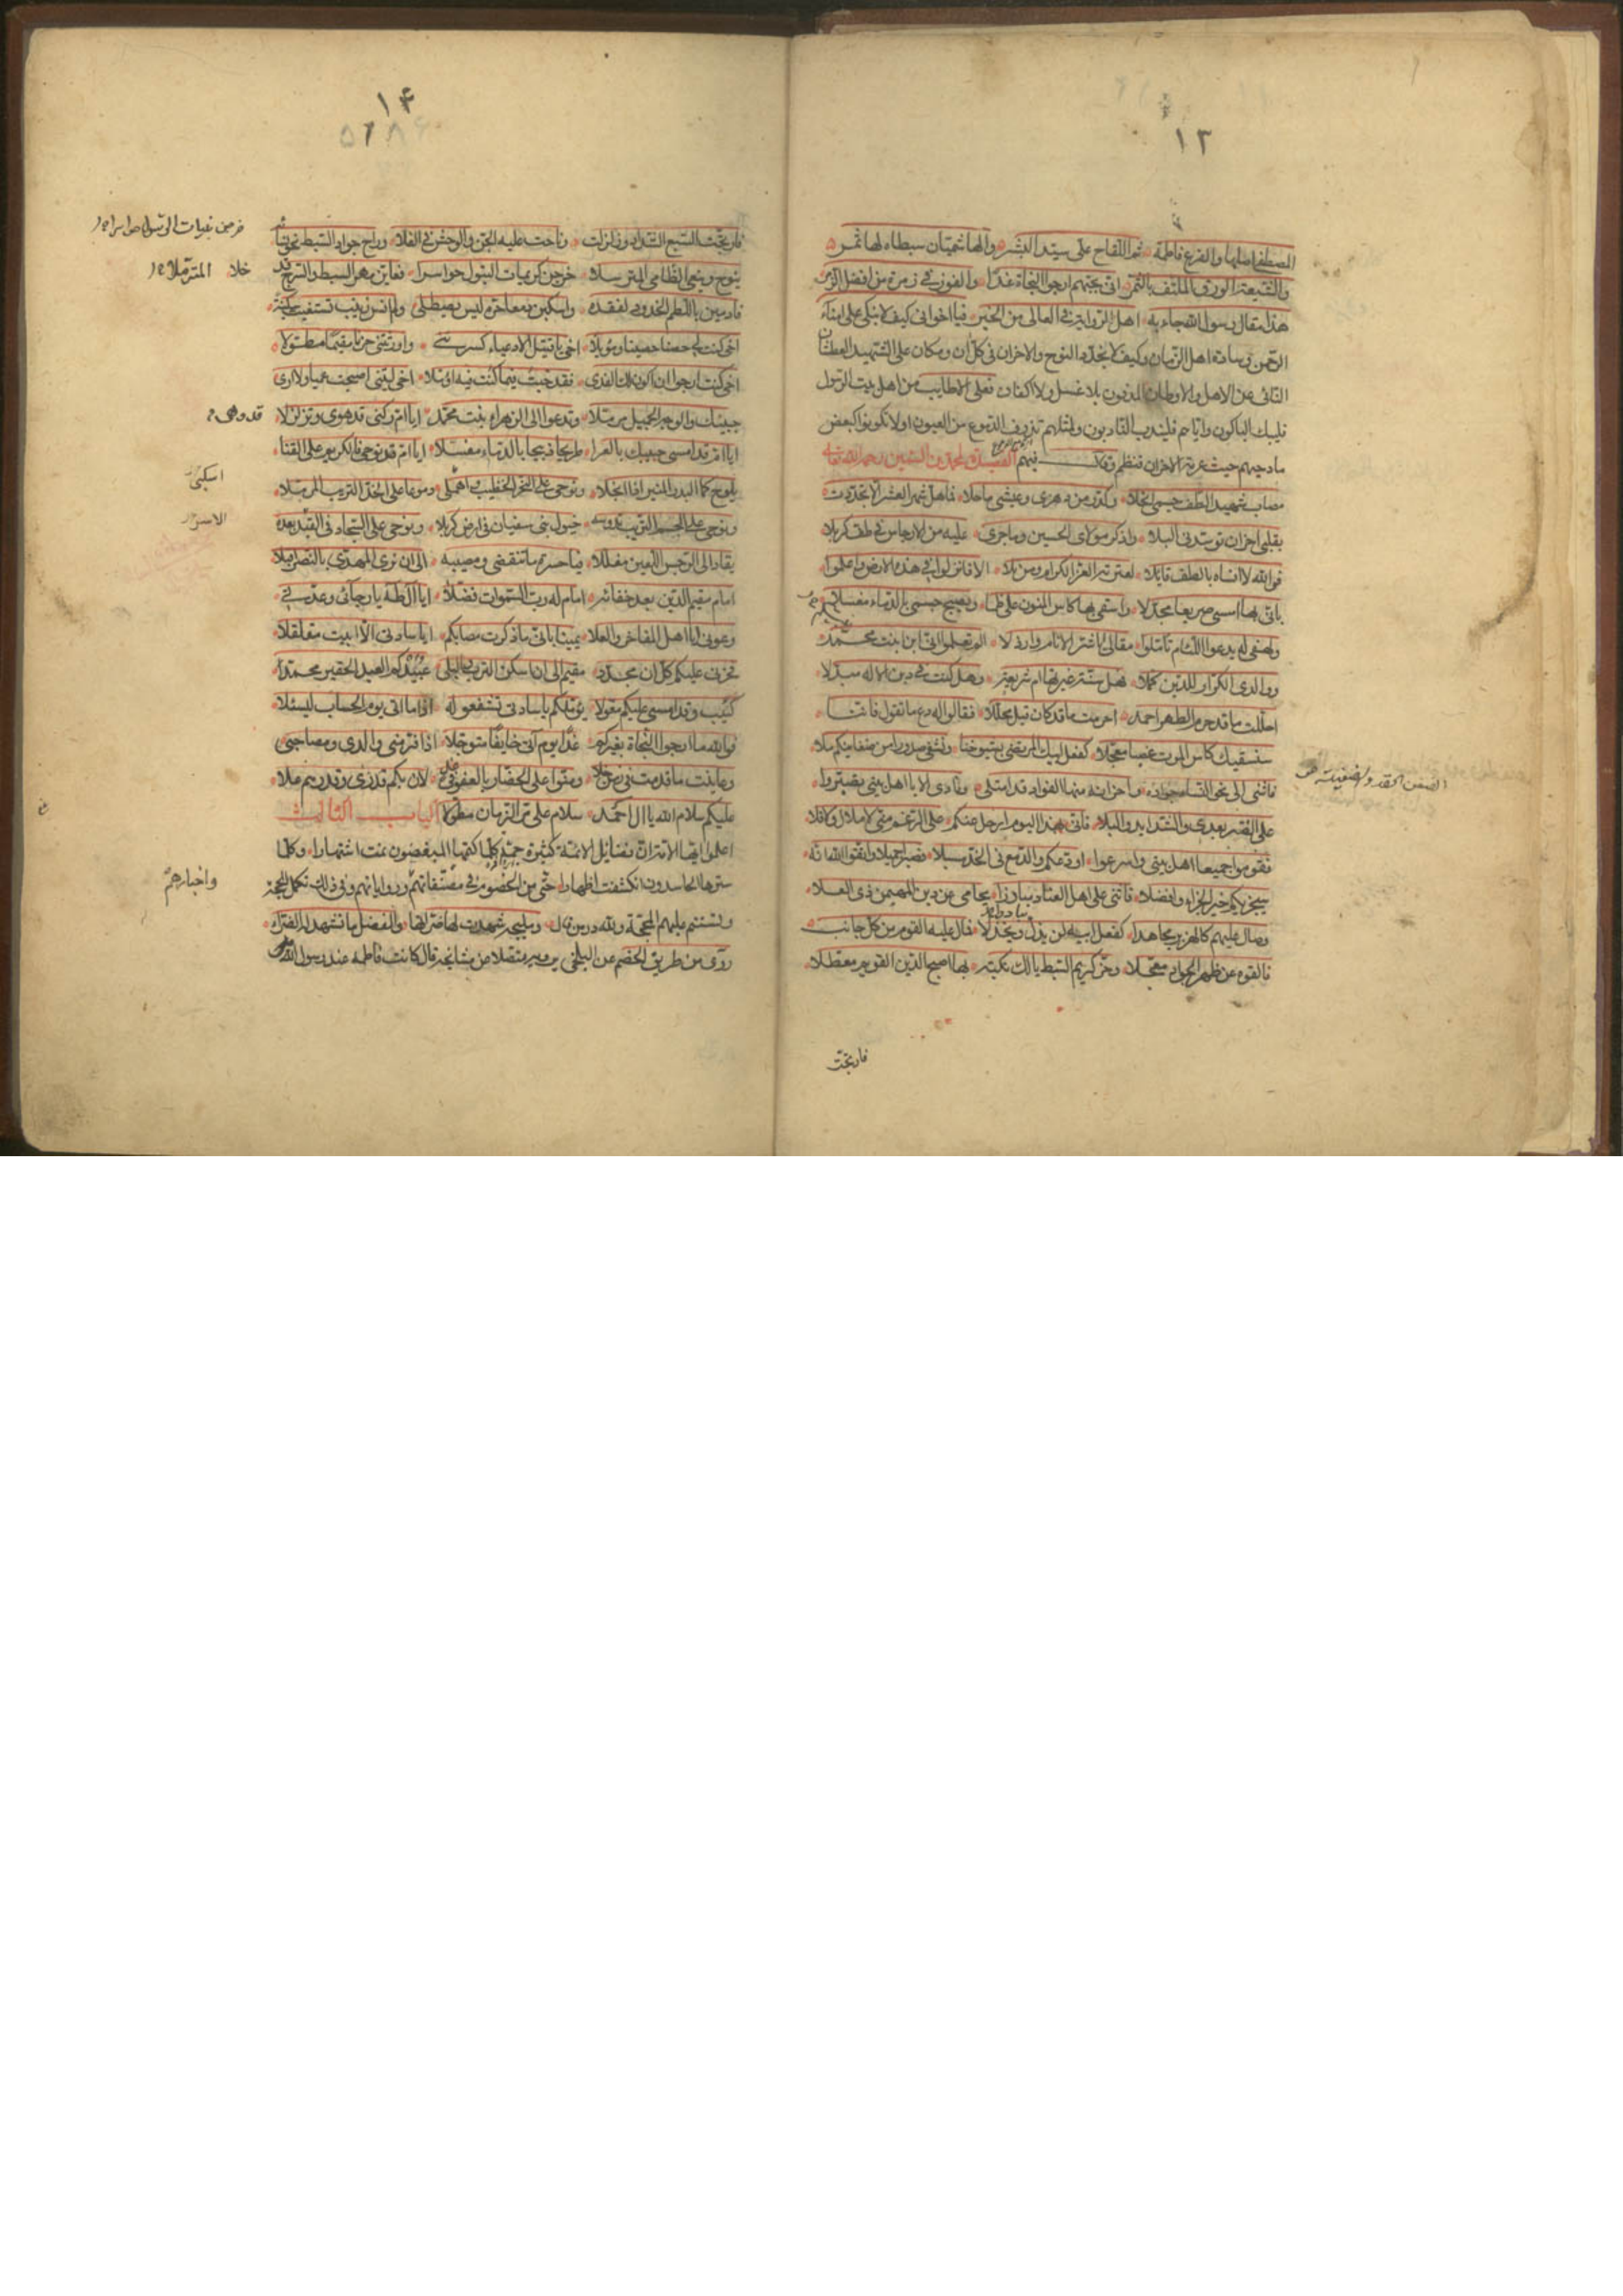 ١٣
المصطفى اصلها والفرع فاطمة ثم اللقاح علي سيد البشر والهاشميان سبطاه لها ثمر
والشيعة الورق الملتف بالثمر انى بحبهم ارجوا النجاة غدا والفوز في زمرة من افضل الزمر
هذا مقال رسول الله جاء به اهل الرواية في العالى من الخبر فيا اخوانى كيف لا نبكى على امناء
الرحمن وسادة اهل الزمان وكيف لا نجدد النوح والاحزان فى كل ان ومكان على الشهيد العطشان
النائى عن الاهل والاوطان المدفون بلا غسل ولا اكفان فعلى الاطايب من اهل بيت الرسول
فليبك الباكون واياهم فليندب النادبون ولمثلهم تذرف الدموع من العيون اولا تكونوا كبعض
مادحيهم حيث عرته الاحزان فنظم وقال فيهم القصيدة لمحمد بن السمين رحمه الله تعالى
مصاب شهيد الطف جسمى انحلا وكدر من دهرى وعيشى ما حلا فما هل شهر العشر الا تجددت
بقلبى احزان توسدنى البلا واذكر مولاى الحسين وما جرى عليه من الارجاس فى طف كربلا
فوالله لا انساه بالطف قايلا لعترته الغر الكرام ومن تلا الا فانزلوا في هذه الارض واعلموا
بانى بها امسى صريعا مجدلا واسقى بها كاس المنون على ظما ويصبح جسمى بالدماء مغسلا
ولهفى له يدعو اللئام تاملوا مقالى يا شر الانام وارذلا الم تعلموا انى ابن بنت محمد
ووالدى الكرار للدين كملا فهل سنة غيرتها ام شريعة وهل كنت فى دين الاله مبدلا
احللت ما قد حرم الطهر احمد احرمت ما قد كان قبل محللا فقالوا له دع ما تقول فاننا
سنسقيك كاس الموت غصبا معجلا كفعل ابيك المرتضى بشيوخنا ونشفى صدورا من ضغاينكم ملا
الضغن الحقد والضغينة
فاثنى الى نحو النساء جواده واحزانه منها الفواد قد امتلى ونادى الا يا اهل بيتى تصبروا
على الضر بعدى والشدايد والبلا فانى بهذا اليوم ارحل عنكم على الرغم منى لا ملال ولا قلا
فقوموا جميعا اهل بيتى واسرعوا اودعكم والدمع فى الخد مسبلا فصبرا جميلا واتقوا الله انه
سيجزيكم خير الجزاء وافضلا فاثنى على اهل العناد مبادرا يحامى عن دين المهيمن ذى العلا
وصال عليهم كالهزبر مجاهدا كفعل ابيه لن يذل ويخذلا فمال عليه القوم من كل جانب
فالقوه عن ظهر الجواد معجلا وخر كريم السبط يا لك نكبة بها اصبح الدين القويم معطلا
فارتجت
١۴
فارتجت السبع الشداد وزلزلت وناحت عليه الجن والوحش فى الفلا وراح جواد السبط نحو نسائه
ينوح وينعى الظامى المترملا خرجن كريمات البتول حواسرا فعاين مهر السبط والسرج قد
خلا
المترملا
فادمين باللطم الخدود لفقده واسكبن دمعا حره ليس يصطلى ولم انس زينب تستغيث سكينة
اخى كنت لى حصنا حصينا وموئلا اخى يا قتيل الادعياء كسرتنى واورثتنى حزنا مقيما مطولا
اخى كنت ارجو ان اكون لك الفدى فقد خبت فيما كنت فيه اؤملا اخى ليتنى اصبحت عميا ولا ارى
جبينك والوجه الجميل مرملا وتدعوا الى الزهراء بنت محمد ايا ام ركنى قد هوى وتزلزلا
قد وهى
ايا ام قد امسى حبيبك بالعرا طريحا ذبيحا بالدماء مغسلا ايا ام قد نوحى فالكريم على القنا
يلوح كما البدر المنير اذا انجلا ونوحى على النحر الخضيب واهملى دموعا على الخد التريب المرملا
اسكبى
ونوحى على الجسم التريب تدوسه خيول بنى سفيان فى ارض كربلا ونوحى على السجاد فى القيد بعده
يقاد الى الرجس اللعين مغللا فيا حسرة ما تنقضى ومصيبة الى ان نرى المهدى بالنصر اقبلا
امام مقيم الدين بعد خفائه امام له رب السموات فضلا ايا آل طه يا رجائى وعدتى
وعونى ايا اهل المفاخر والعلا يمينا بانى ما ذكرت مصابكم ايا سادتى الا ابيت مقلقلا
فحزنى عليكم كل ان مجدد مقيم الى ان اسكن الترب والبلى عبيدكم العبد الحقير محمد
كئيب وقد امسى عليكم معولا يؤملكم يا سادتى تشفعوا له اذا ما اتى يوم الحساب ليسئلا
فوالله ما ارجوا النجاة بغيركم غدا يوم آتى خايفا متوجلا اذا فر منى والدى ومصاحبى
وعاينت ما قدمت فى زمن خلا ومنوا على الحضار بالعفو فى غد لان بكم قدرى وقدرهم علا
عليكم سلام الله يا آل احمد سلام على مر الزمان مطولا الباب الثالث
اعلموا ايها الاخوان فضايل الائمة كثيرة جمة كلما كتمها المبغضون نمت اشتهارا وكلما
سترها الحاسدون انكشفت اظهارا حتى من الخصوم فى مصنفاتهم ورواياتهم وفى ذلك تكمل الحجة
واخبارهم
وتستتم عليهم المحجة ولله در من قال ومليحة شهدت لها ضراتها والفضل ما تشهد له الضراء
روى من طريق الخصم عن البلخى يرويه متصلا من مشايخه قال كانت فاطمه عند رسول الله